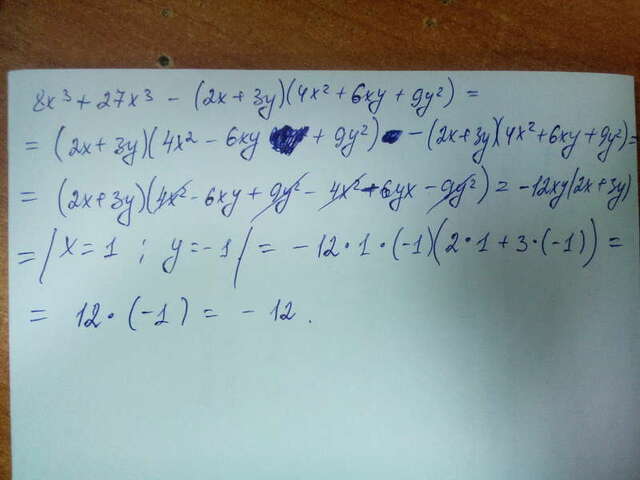 8x³ + 27x³ - (2x + 3y)(4x² + 6xy + 9y²) =
= (2x + 3y)(4x² - 6xy + 9y²) - (2x+3y)(4x²+6xy+9y²) =
= (2x+3y)(4x² - 6xy + 9y² - 4x² - 6yx - 9y²) = -12xy(2x+3y)
= |x = 1 ; y = -1| = -12·1·(-1)(2·1 + 3·(-1)) =
= 12·(-1) = -12.